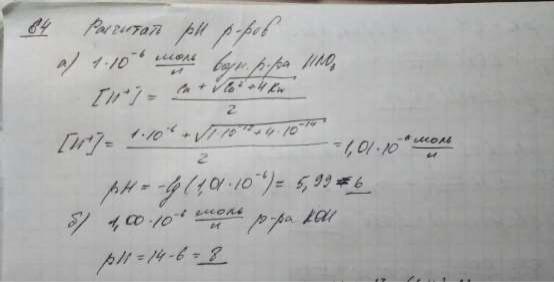 64 Рассчитать pH р-ров
а) 1·10⁻⁶ моль/л водн. р-ра HNO₃
[H⁺] = (Cа + √(Cа² + 4Kw)) / 2
[H⁺] = (1·10⁻⁶ + √(1·10⁻¹² + 4·10⁻¹⁴)) / 2 = 1,01·10⁻⁶ моль/л
pH = -lg(1,01·10⁻⁶) = 5,99 ≈ 6
б) 1,00·10⁻⁶ моль/л р-ра KOH
pH = 14-6 = 8